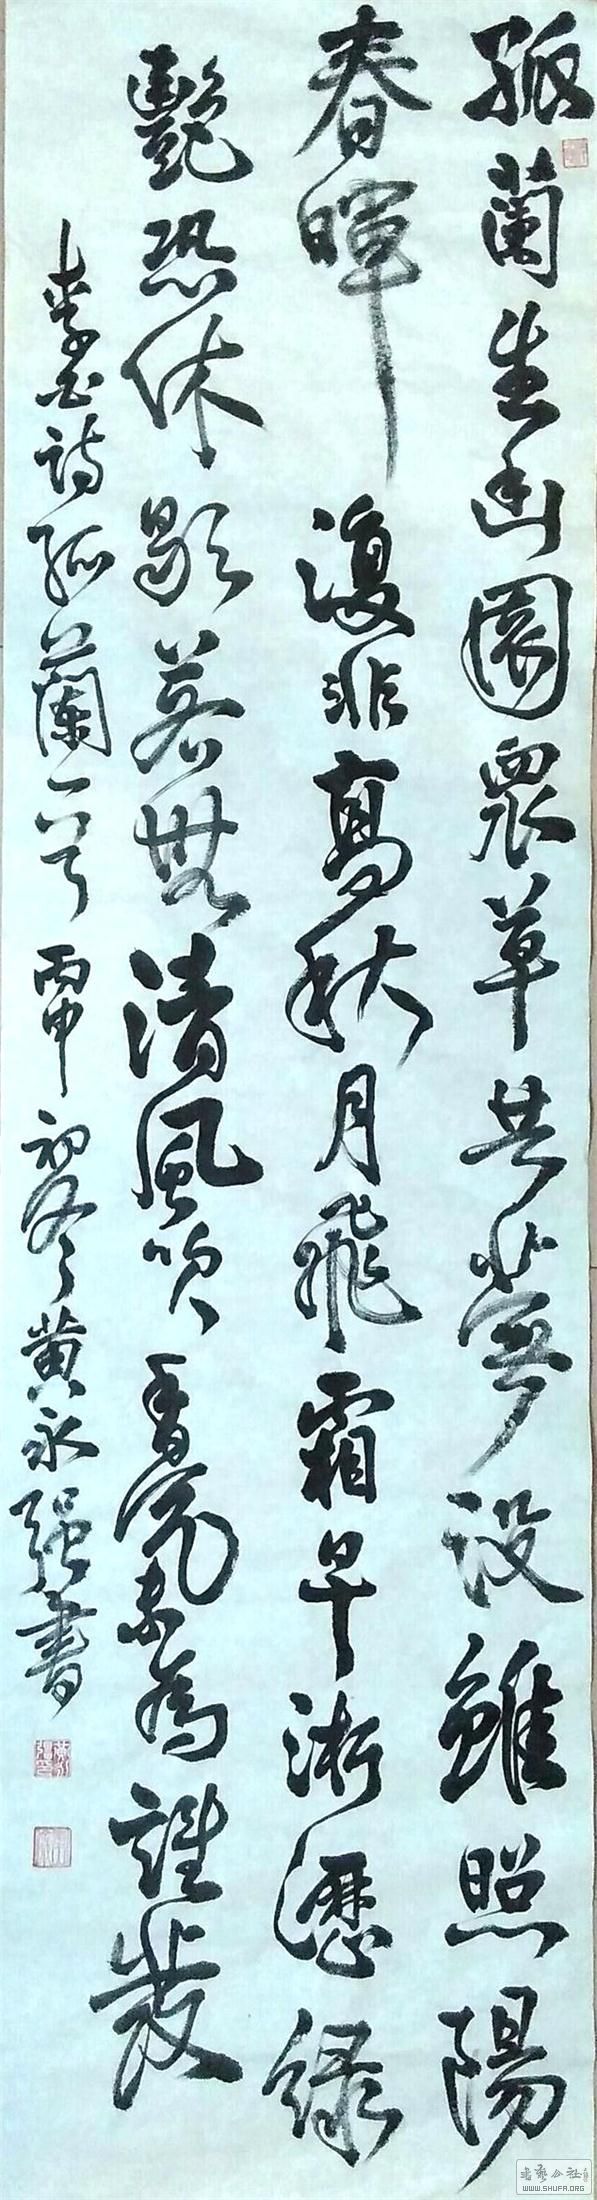 孤蘭生幽園衆草共蕪没雖照陽
春暉復非高秋月飛霜早淅瀝緑
艷恐休歇若無清風吹香氣未為誰發
李白詩孤蘭一首丙申初冬黄永强書
書藝公社
WWW.SHUFA.ORG